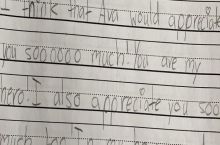 I think that Ava would appreciate
you soooooo much. You are my
hero. I also appreciate you soo
much too